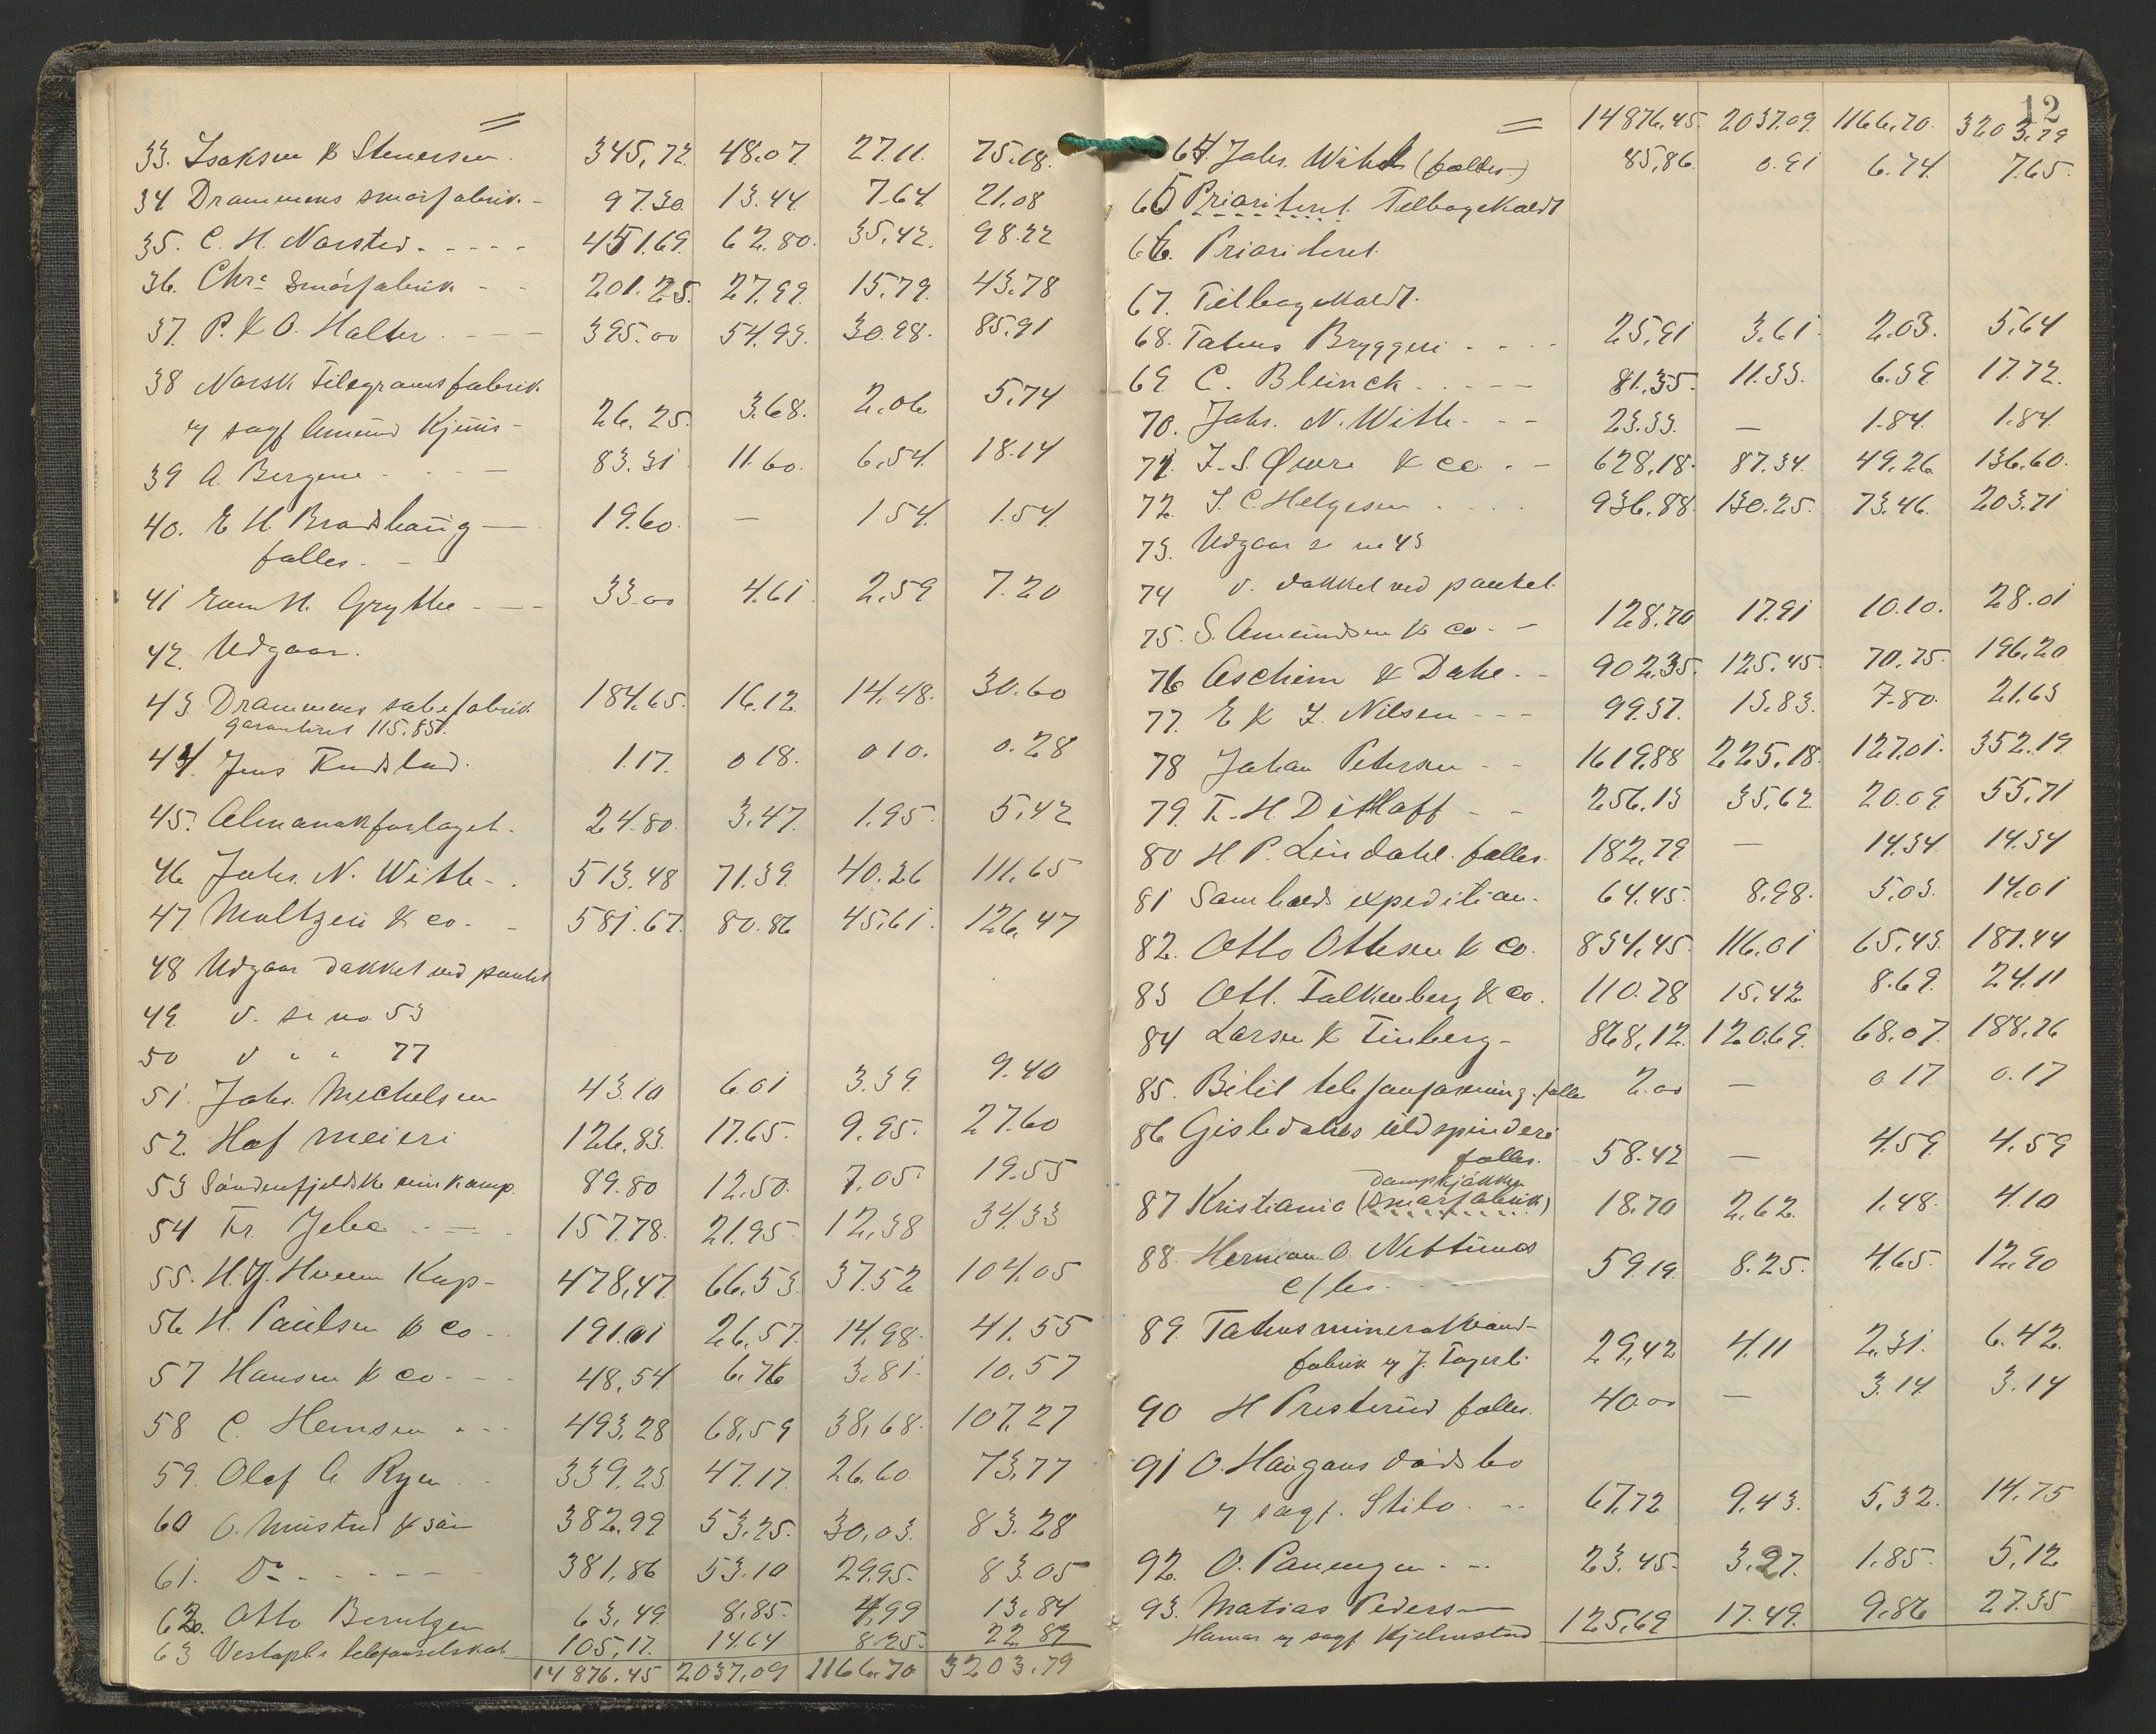 =
33. Isaksen & Stenersen. 345,72. 48.07. 27.11. 75.18.
34 Drammens smørfabrik. - 97.30. 13.44. 7.64. 21.08
35. C. H. Norsted. - - - - 451.69. 62.80. 35.42. 98.22
36. Chr.a Smørfabrik - - 201.25. 27.99. 15.79. 43.78
37. P. & O. Halter. - - 395.00 54.93. 30.98. 85.91
38 Norsk Filegramsfabrik
v sagf Amund Kjuus - 26.25. 3.68. 2.06 5.74
39 A. Bergene - - - 83.31 11.60. 6.54. 18.14
40. E H Bradhaug - 19.60. - 1 54. 1.54
falles. -
41 Eum H. Grythe - - - 33.00 4.61. 2.59 7.20
42. Udgaar.
43. Drammens sæbefabrik 184.65. 16.12. 14.48. 30.60
garanteret 115.85.
44. Jens Rudslad. 1.17. 0 18. 0 10. 0.28
45. Almanakforlaget. 24.80. 3.47. 1.95. 5.42
46 Johs. N. With - . 513.48 71.39. 40.26 111.65
47. Moltzen & co. - 581.67. 80.86 45.61. 126.47
48 Udgaar dækket ved pantet
49. v. se no 53
50 v " " 77
51. Johs. Michelsen 43.10 6.01 3.39. 9.40
52. Hof meieri 126.83. 17.65. 9.95. 27.60
53 Søndenfjeldske minkomp. 89.80 12.50. 7.05. 19.55
54 Fr. Jebe - - - 157.78. 21.95. 12.38 34.33
55. H. J. Hveem Kap - 478.47. 66.53. 37.52 104.05
56 H. Paulsen & Co - 191.01 26.57. 14.98. 41.55
57 Hansen & co. - - 48.54 6.76 3.81. 10.57
58 C. Hemsen - - - 493.28 68.59 38.68. 107.27
59. Olaf A Ryen - 339.23. 47.17. 26.60. 73.77
60 O. Mustad & søn 382.99. 53.25. 30.03. 83.28
61. Do - - - - - 381.86 53.10 29.95. 83.05
62. Otto Berntzen 63,49 8.85. 4,99 13.84
63 Vestopl. telefonselskab 105,17. 14.64 8.25. 22 89
14 876.45 2037,09 1166.70 3203.79
12
= 14876.45. 2037.09. 1166.70. 3203.79
64. Johs. With (falles) 85,86. 0.91 6.74. 7.65.
65 Prioriteret. Tilbagekaldt
66. Prioriteret.
67. Tilbagekaldt.
68. Totens Bryggeri - - - - 25.91 3.61. 2.03. 5.64
69 C. Blunck - - - - - 81.35. 11.33. 6.39. 17.72.
70. Johs. N. With. - - 23.33. - 1.84. 1.84.
71. I. S. Øvre & co. - - 628.18. 87.34. 49.26 136.60.
72. I. C. Helgesen - - - 936.88. 130.25. 73.46. 203.71
73. Udgaar se no 43
74 v. dækket ved pantet
75. S. Amundsen & co. - - 128.70 17.91 10.10. 28.01
76 Aschim & Dahe. - - 902.35. 125.45. 70.75. 196.20
77. E & I. Nilsen - - - 99.37. 13.83. 7.80. 21.63
78 Johan Petersen - - 1619.88 225.18. 127.01. 352.19
79. F. H. Ditloff - - 256.13 35.62. 20.09 55.71
80 H P. Lindahl. falles. 182.79. - 14.34. 14.34
81 Sambands expedition. 64.45. 8.98. 5.03. 14.01
82. Otto Ottesen & Co. 834.45. 116.01 65.43. 181.44
83 Ott. Falkenberg & co. 110.78 15.42. 8.69. 24.11
84 Larsen & Finberg - 868.12. 120.69. 68.07. 188.76
85. Bilit telefonforening. falles 2.00 - 0.17 0.17
86 Gisledahls uldspinderi
falles. 58.42 - 4.59. 4.59
dampkjøkken
87 Kristiania (smørfabrik) 18.70 2.62. 1.48. 4.10
88. Herman O. Nettums
eftf. 59.19. 8.25. 4.65. 12.90
89. Totens mineralvand-
fabrik v J. Fagerli 29.42 4.11 2.31. 6.42.
90 H Presterud falles. 40.00 - 3.14. 3.14
91 O. Haugans dødsbo
v sagf. Stilo. - - 67.72 9.43. 5.32. 14.75
92. O. Pannengen - - 23.45. 3.27. 1.85. 5.12
93. Matias Pedersen 125.69 17.49. 9.86 27.35
Hamar v sagf Kjelmstad